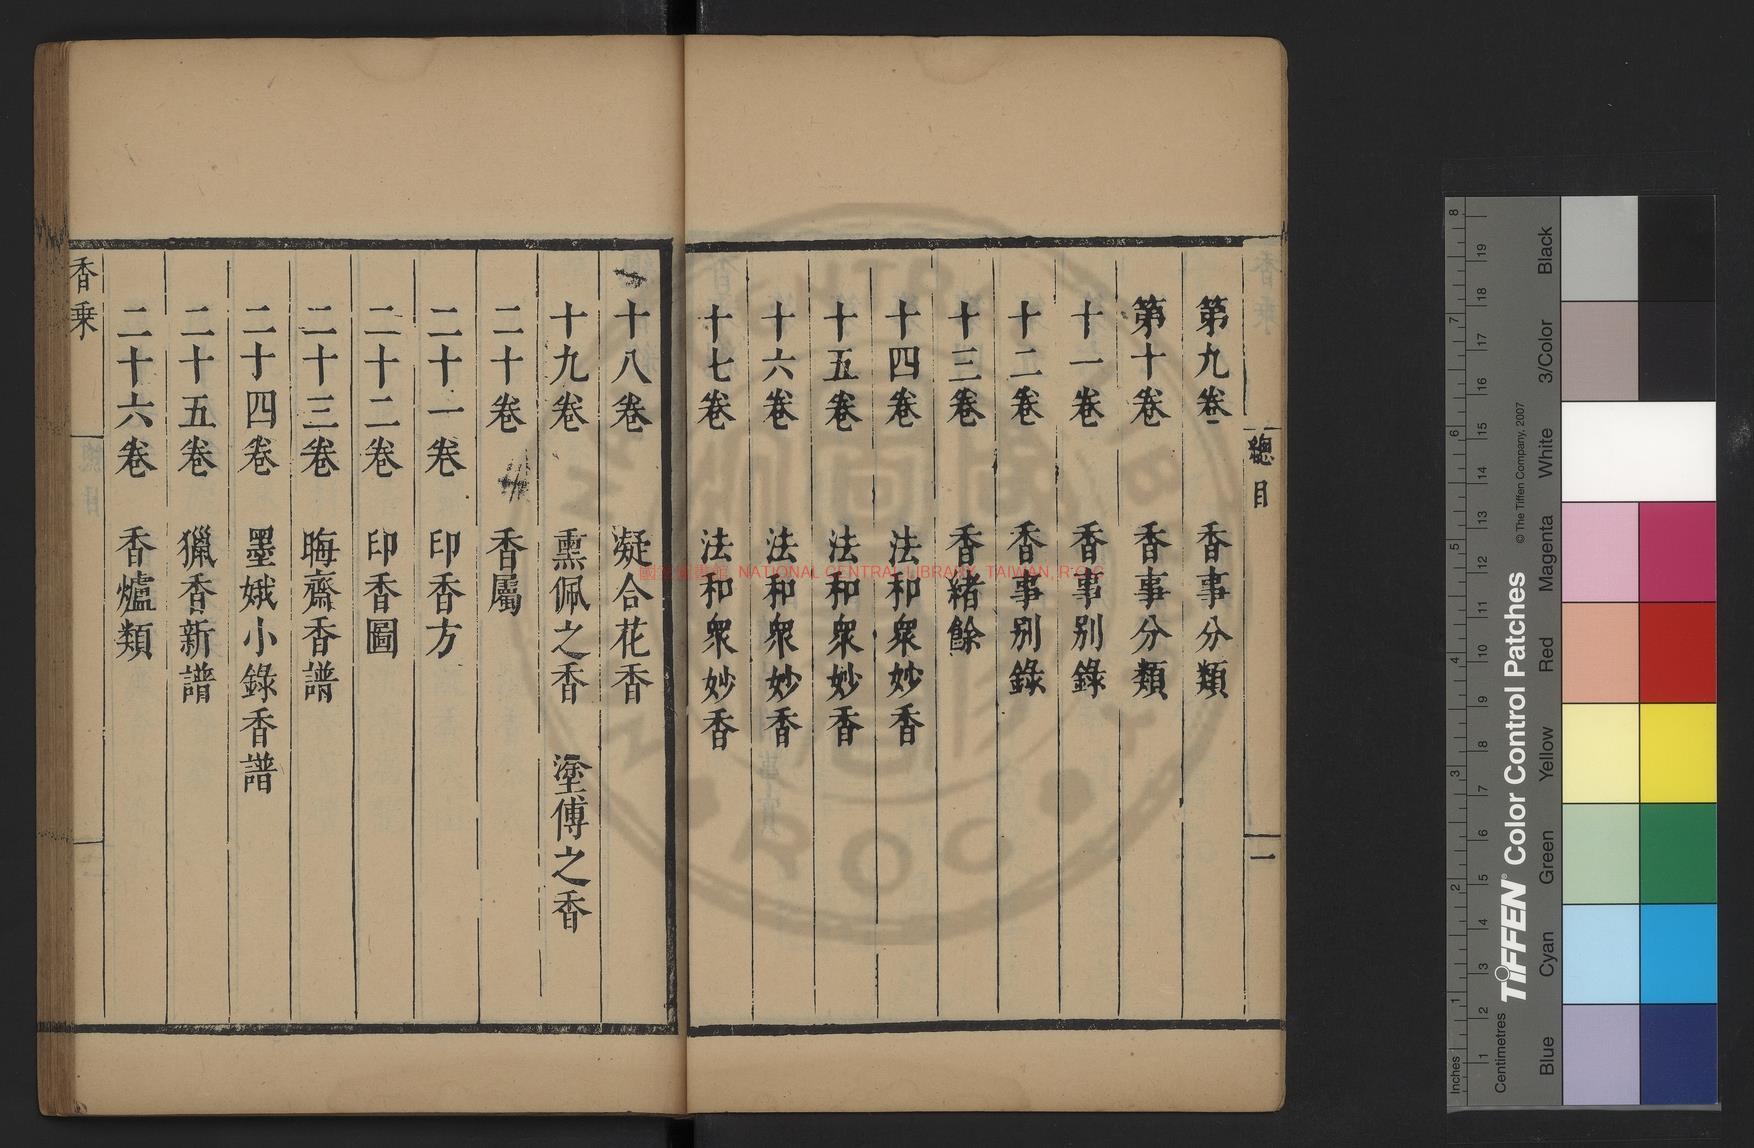 總目
一
第九卷 香事分類
第十卷 香事分類
十一卷 香事別錄
十二卷 香事別錄
十三卷 香緒餘
十四卷 法和衆妙香
十五卷 法和衆妙香
十六卷 法和衆妙香
十七卷 法和衆妙香
十八卷 凝合花香
十九卷 熏佩之香 塗傅之香
二十卷 香屬
二十一卷 印香方
二十二卷 印香圖
二十三卷 晦齋香譜
二十四卷 墨娥小錄香譜
二十五卷 獵香新譜
二十六卷 香爐類
香乗
國家圖書館 NATIONAL CENTRAL LIBRARY, TAIWAN, R.O.C
Inches 1 2 3 4 5 6 7 8
Centimetres 1 2 3 4 5 6 7 8 9 10 11 12 13 14 15 16 17 18 19
TIFFEN® Color Control Patches © The Tiffen Company, 2007
Blue Cyan Green Yellow Red Magenta White 3/Color Black